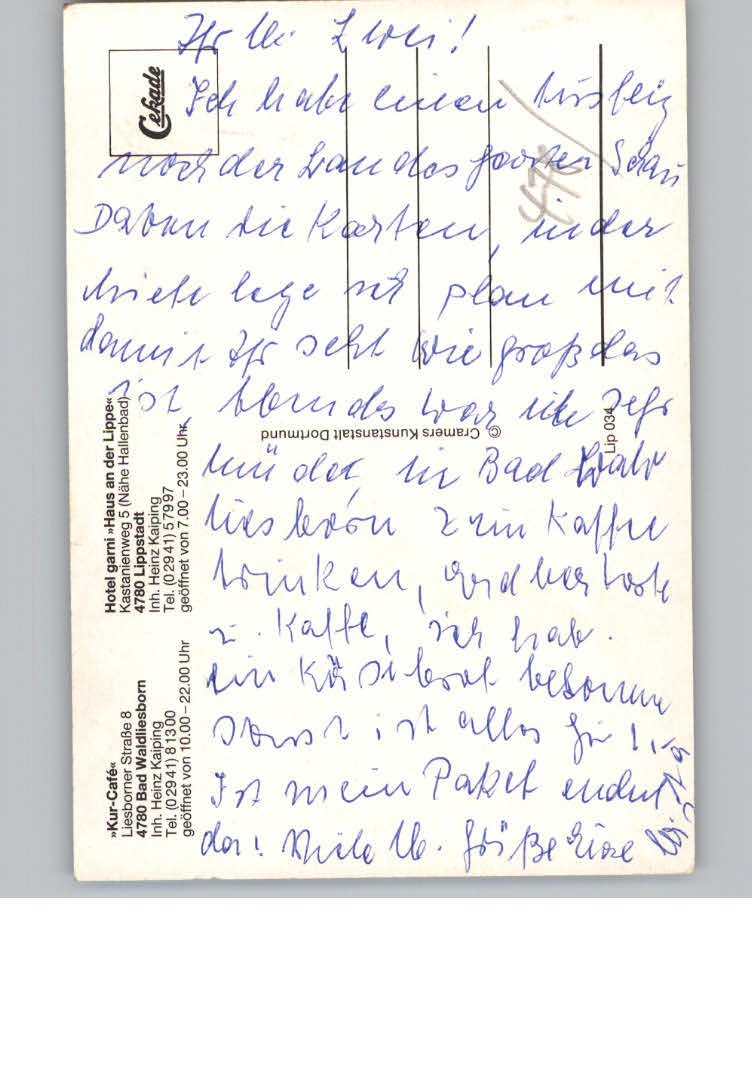 Ihr lb. Zwei!
Ich habe einen Ausflug
nach der Landesgarten Schau
Davon die Karten, in der
Miete lege ich plan mit
damit Ihr seht wie groß das
ist, Abends war ich sehr
müde, in Bad Wald
liesborn zum Kaffee
trinken, Erdbertorte
u. Kaffe, ich hab.
ein Käsebrot bekomme
sonst ist alles für
Ist mein Paket endl
da! Viele lb. Grüße
Cekade
»Kur-Café«
Liesborner Straße 8
4780 Bad Waldliesborn
Inh. Heinz Kaiping
Tel. (0 29 41) 8 13 00
geöffnet von 10.00 – 22.00 Uhr
Hotel garni »Haus an der Lippe«
Kastanienweg 5 (Nähe Hallenbad)
4780 Lippstadt
Inh. Heinz Kaiping
Tel. (0 29 41) 5 79 97
geöffnet von 7.00 – 23.00 Uhr
© Cramers Kunstanstalt Dortmund
Lip 034